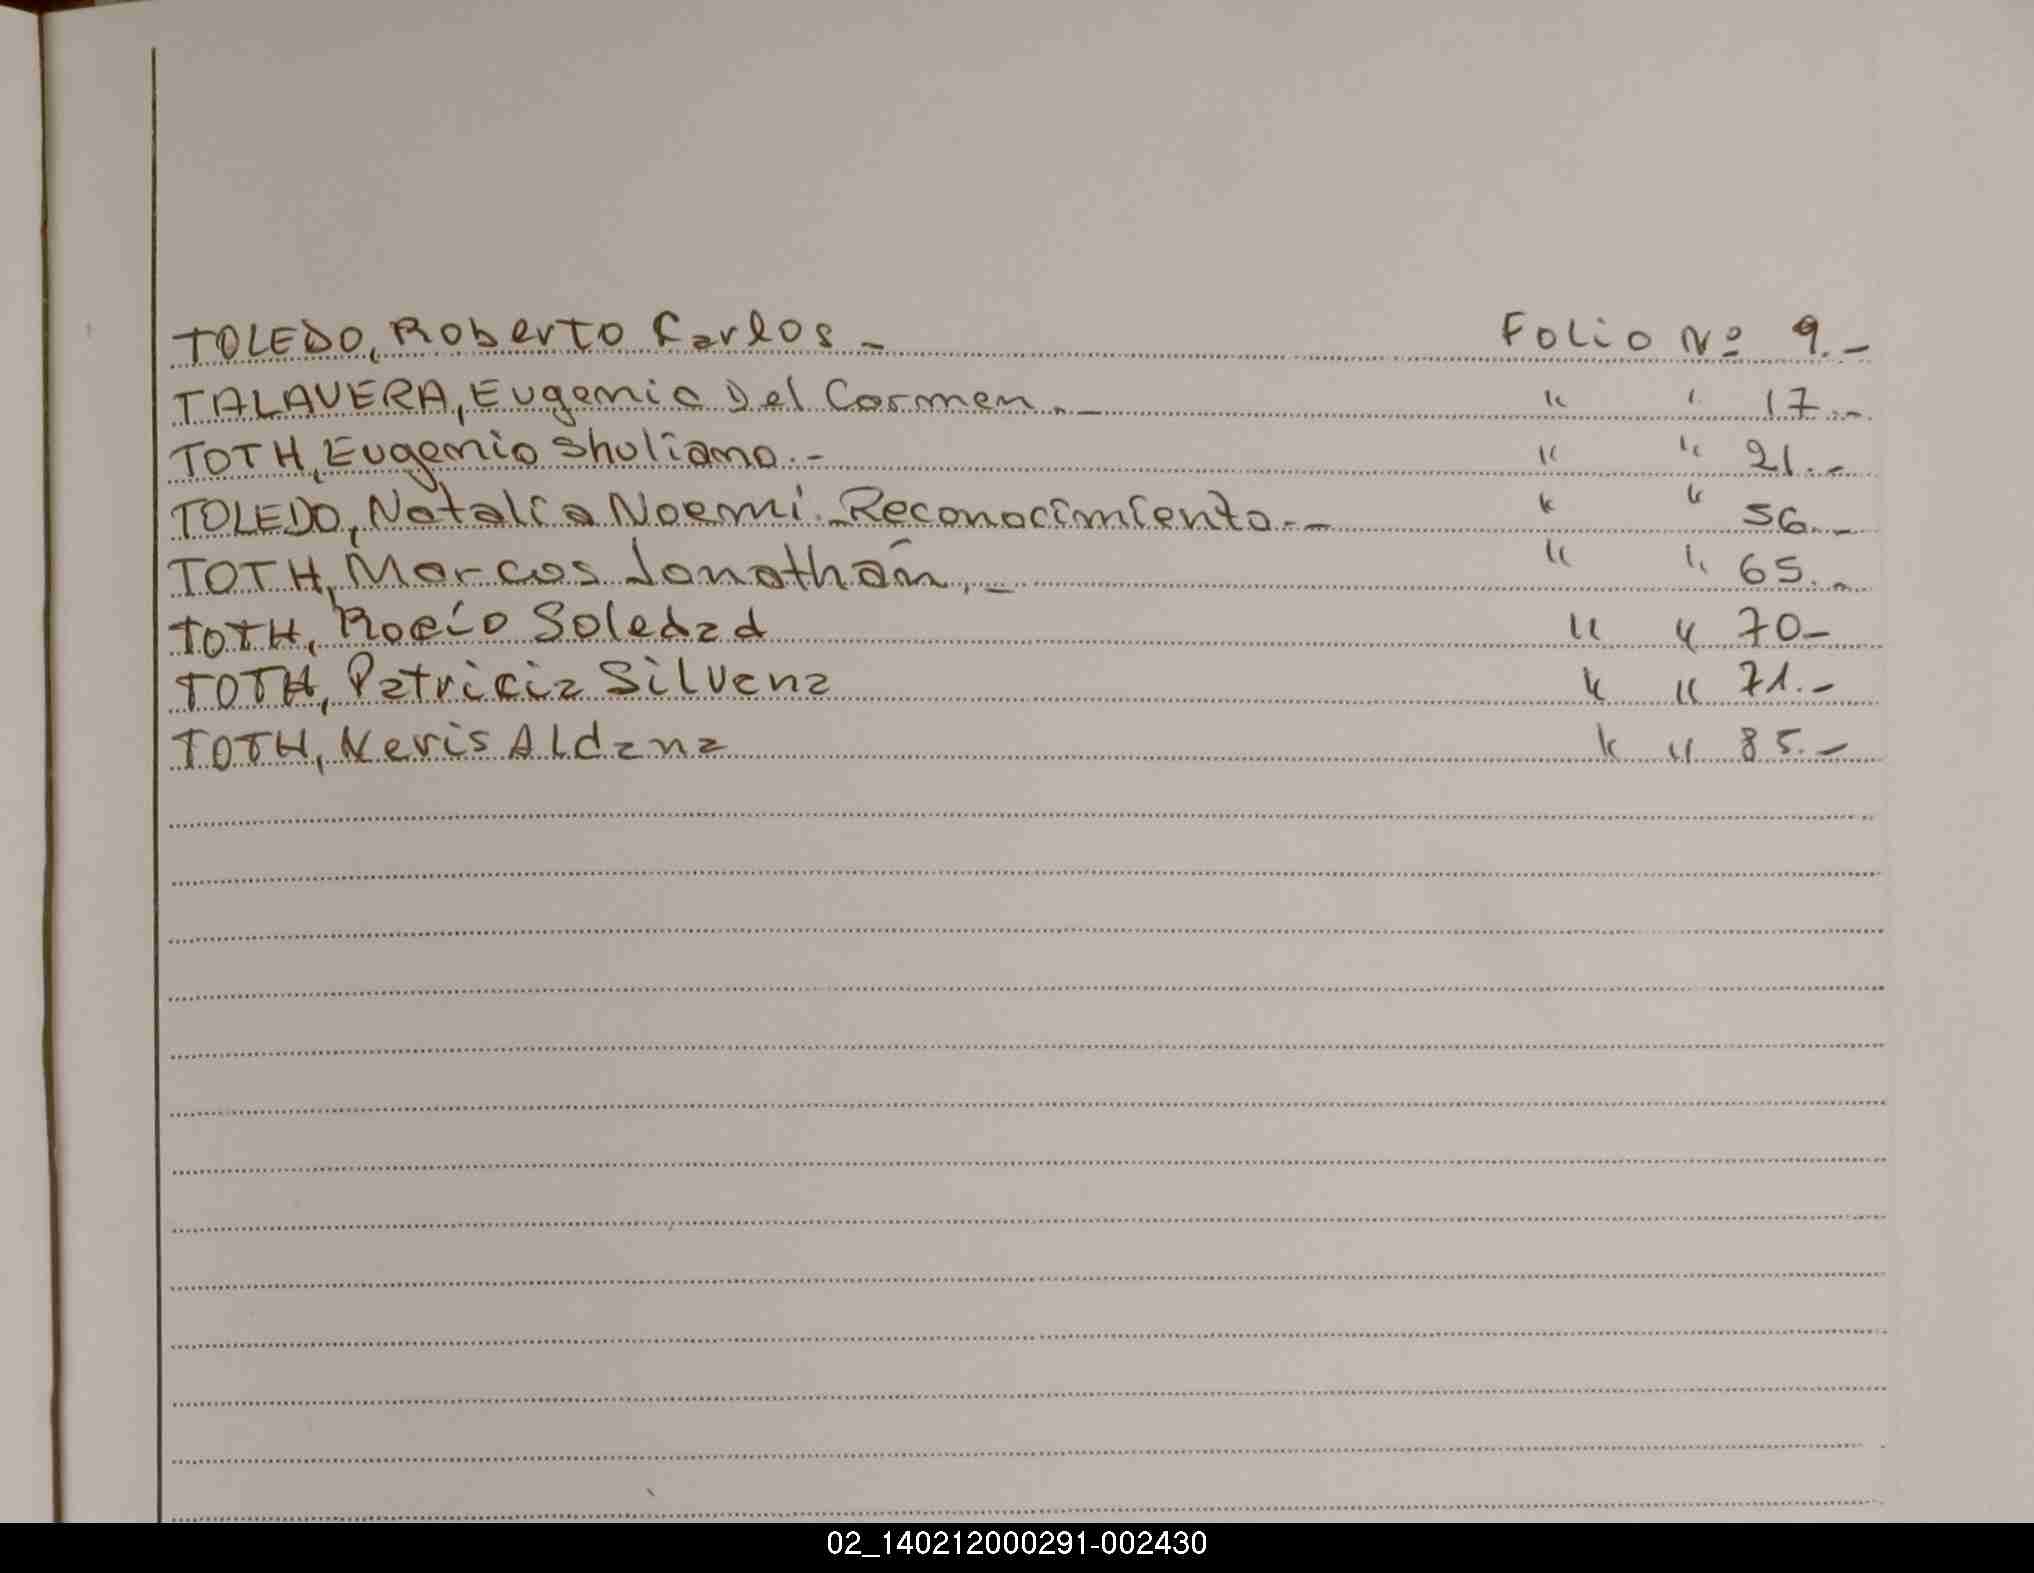 TOLEDO, Roberto Carlos.- Folio Nº 9.-
TALAVERA, Eugenia Del Carmen.- " " 17.-
TOTH, Eugenio Shuliano.- " " 21.-
TOLEDO, Natalia Noemi.-Reconocimiento.- " " 56.-
TOTH, Marcos Jonathán.- " " 65.-
TOTH, Rocío Soledad " " 70-
TOTH, Patricia Silvana " " 71.-
TOTH, Neris Aldana " " 85.-
02_140212000291-002430